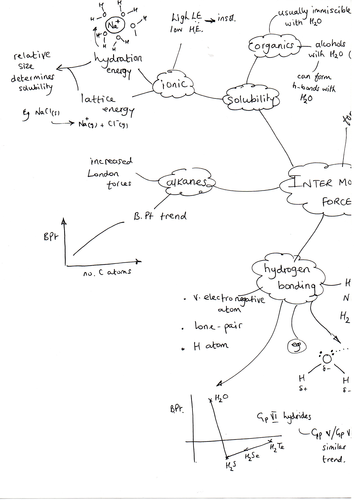 usually immiscible
with H2O
High LE → insol.
low HE.
organics
alcohols
with H2O (
can form
h-bonds with
H2O
Na+
H
O
H
relative
size
determines
solubility
hydration
energy
ionic
solubility
lattice
energy
Eg NaCl(s)
→ Na+(g) + Cl-(g)
increased
London
forces
alkanes
INTER MO
FORCE
B.Pt trend
BPt
no. C atoms
hydrogen
bonding
• v. electronegative
atom
• lone-pair
• H atom
eg
H
N
H2
O
δ-
H
H
δ+
BPt.
H2O
Gp VI hydrides
H2S
H2Se
H2Te
Gp V/Gp V
similar
trend.